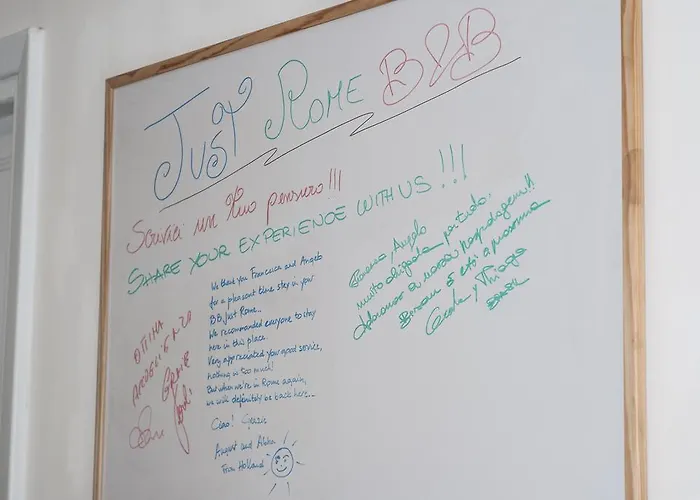 JUST ROME B&B
Scrivici un tuo pensiero!!!
SHARE YOUR EXPERIENCE WITH US!!!
We thank you Francesca and Angelo
for a pleasant time stay in your
BB, Just Rome..
We recommanded everyone to stay
here in this place.
Very appreciated your good service,
nothing is too much!
But when we're in Rome again,
we will definitely be back here...
Ciao! Grazie
August and
From Holland
Angelo
muito obrigada por tudo.
Adoramos a nossa hospedagem!!
a proxima
y Thiago
BRASIL